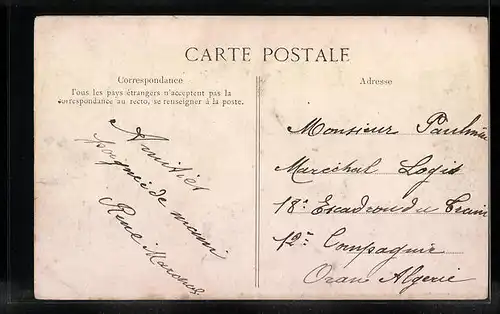 CARTE POSTALE
Correspondance
Tous les pays étrangers n'acceptent pas la
correspondance au recto, se renseigner à la poste.
Amitiés
de mami
René
Adresse
Monsieur
Maréchal Logis
18e Escadron du Train
12e Compagnie
Oran Algerie